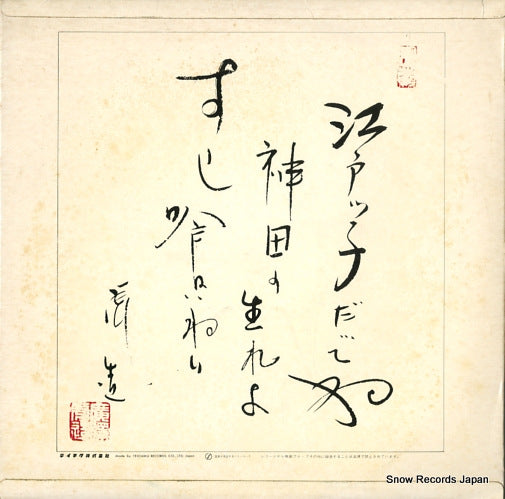 江戸ッ子だってね
神田の生れよ
すし喰いねェ
虎造
テイチク株式会社 Made by TEICHIKU RECORDS CO., LTD. Japan
Snow Records Japan